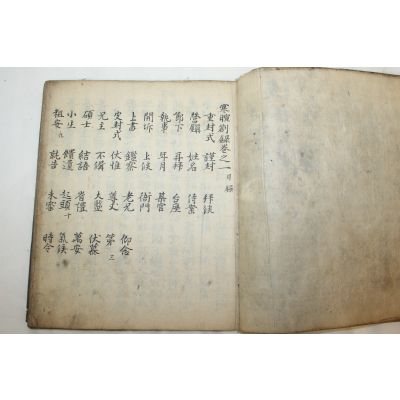 寒暄劄錄卷之一 目錄
重封式 謹封 拜候
詧顧 姓名 侍案
節下 再拜 台座
執事 年月 某官
開坼 上候 衙門
上書 鑑察 老兄 仰念
定封式 伏惟 尊丈 第三
兄主 不備 大鑒 伏慕
碩士 結語 省禮 萬安
小生 饋遺 起頭 氣候
祖安 就告 未審 時令